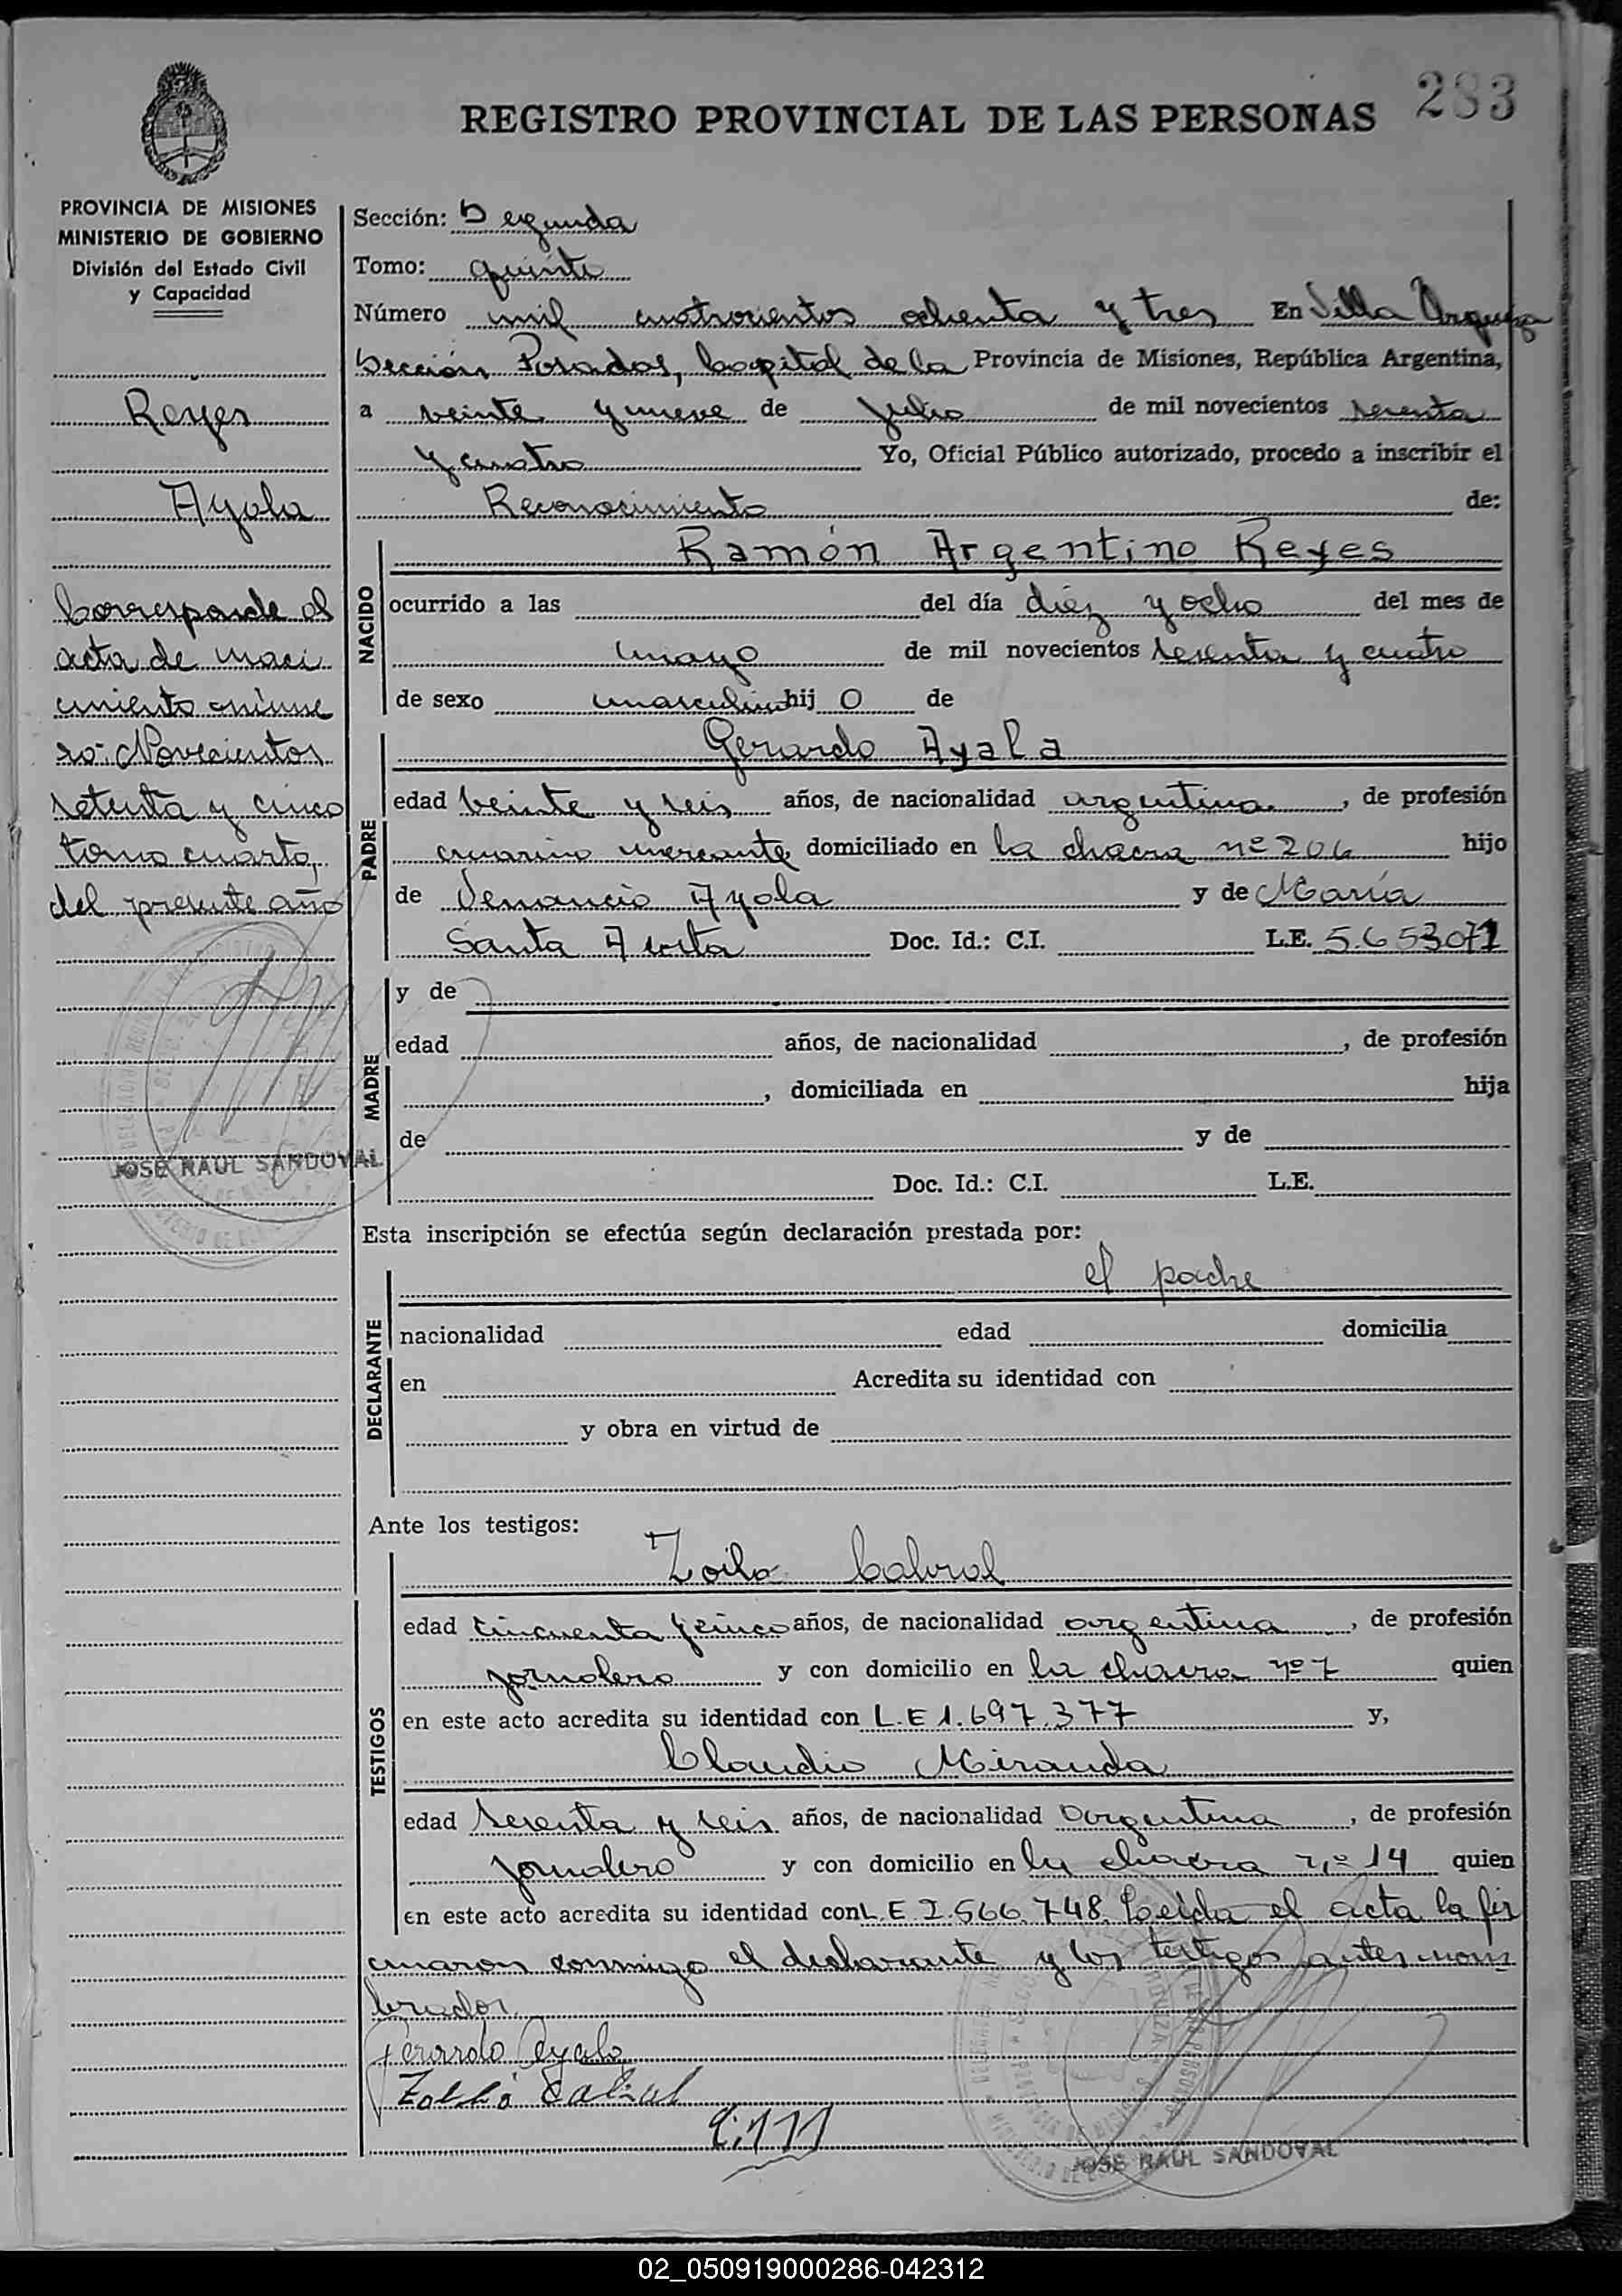 283
REGISTRO PROVINCIAL DE LAS PERSONAS
PROVINCIA DE MISIONES
MINISTERIO DE GOBIERNO
División del Estado Civil
y Capacidad
Reyes
Ayala
Corresponde al
acta de naci
miento núme
ro: Novecientos
setenta y cinco
tomo cuarto,
del presente año
JOSE RAUL SANDOVAL
Sección: Segunda
Tomo: quinto
Número mil cuatrocientos ochenta y tres En Villa Urquiza
Sección Posadas, Capital de la Provincia de Misiones, República Argentina,
a veinte y nueve de julio de mil novecientos sesenta
y cuatro Yo, Oficial Público autorizado, procedo a inscribir el
Reconocimiento de:
NACIDO
Ramón Argentino Reyes
ocurrido a las del día diez y ocho del mes de
mayo de mil novecientos sesenta y cuatro
de sexo masculino hij o de
PADRE
Gerardo Ayala
edad veinte y seis años, de nacionalidad argentina, de profesión
marino mercante domiciliado en la chacra nº 206 hijo
de Venancio Ayala y de María
Santa Acosta Doc. Id.: C.I. L.E. 5653071
MADRE
y de
edad años, de nacionalidad , de profesión
, domiciliada en hija
de y de
Doc. Id.: C.I. L.E.
Esta inscripción se efectúa según declaración prestada por:
el padre
DECLARANTE
nacionalidad edad domicilia
en Acredita su identidad con
y obra en virtud de
Ante los testigos:
TESTIGOS
Zoilo Cabral
edad cincuenta y cinco años, de nacionalidad argentina, de profesión
jornalero y con domicilio en la chacra nº 7 quien
en este acto acredita su identidad con L.E 1.697.377 y,
Claudio Miranda
edad sesenta y seis años, de nacionalidad argentina, de profesión
jornalero y con domicilio en la chacra nº 14 quien
en este acto acredita su identidad con L.E. 2.566.748. Leída el acta la fir
maron conmigo el declarante y los testigos antes nom
brados.
Gerardo Ayala
Zoilo Cabral
JOSE RAUL SANDOVAL
02_050919000286-042312